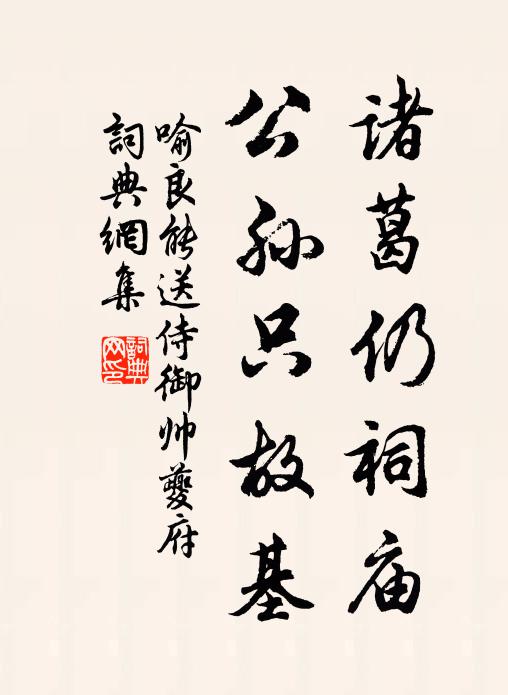 诸葛仍祠庙
公孙只故基
喻良能送侍御帅夔府
詞典網集
詞典網印